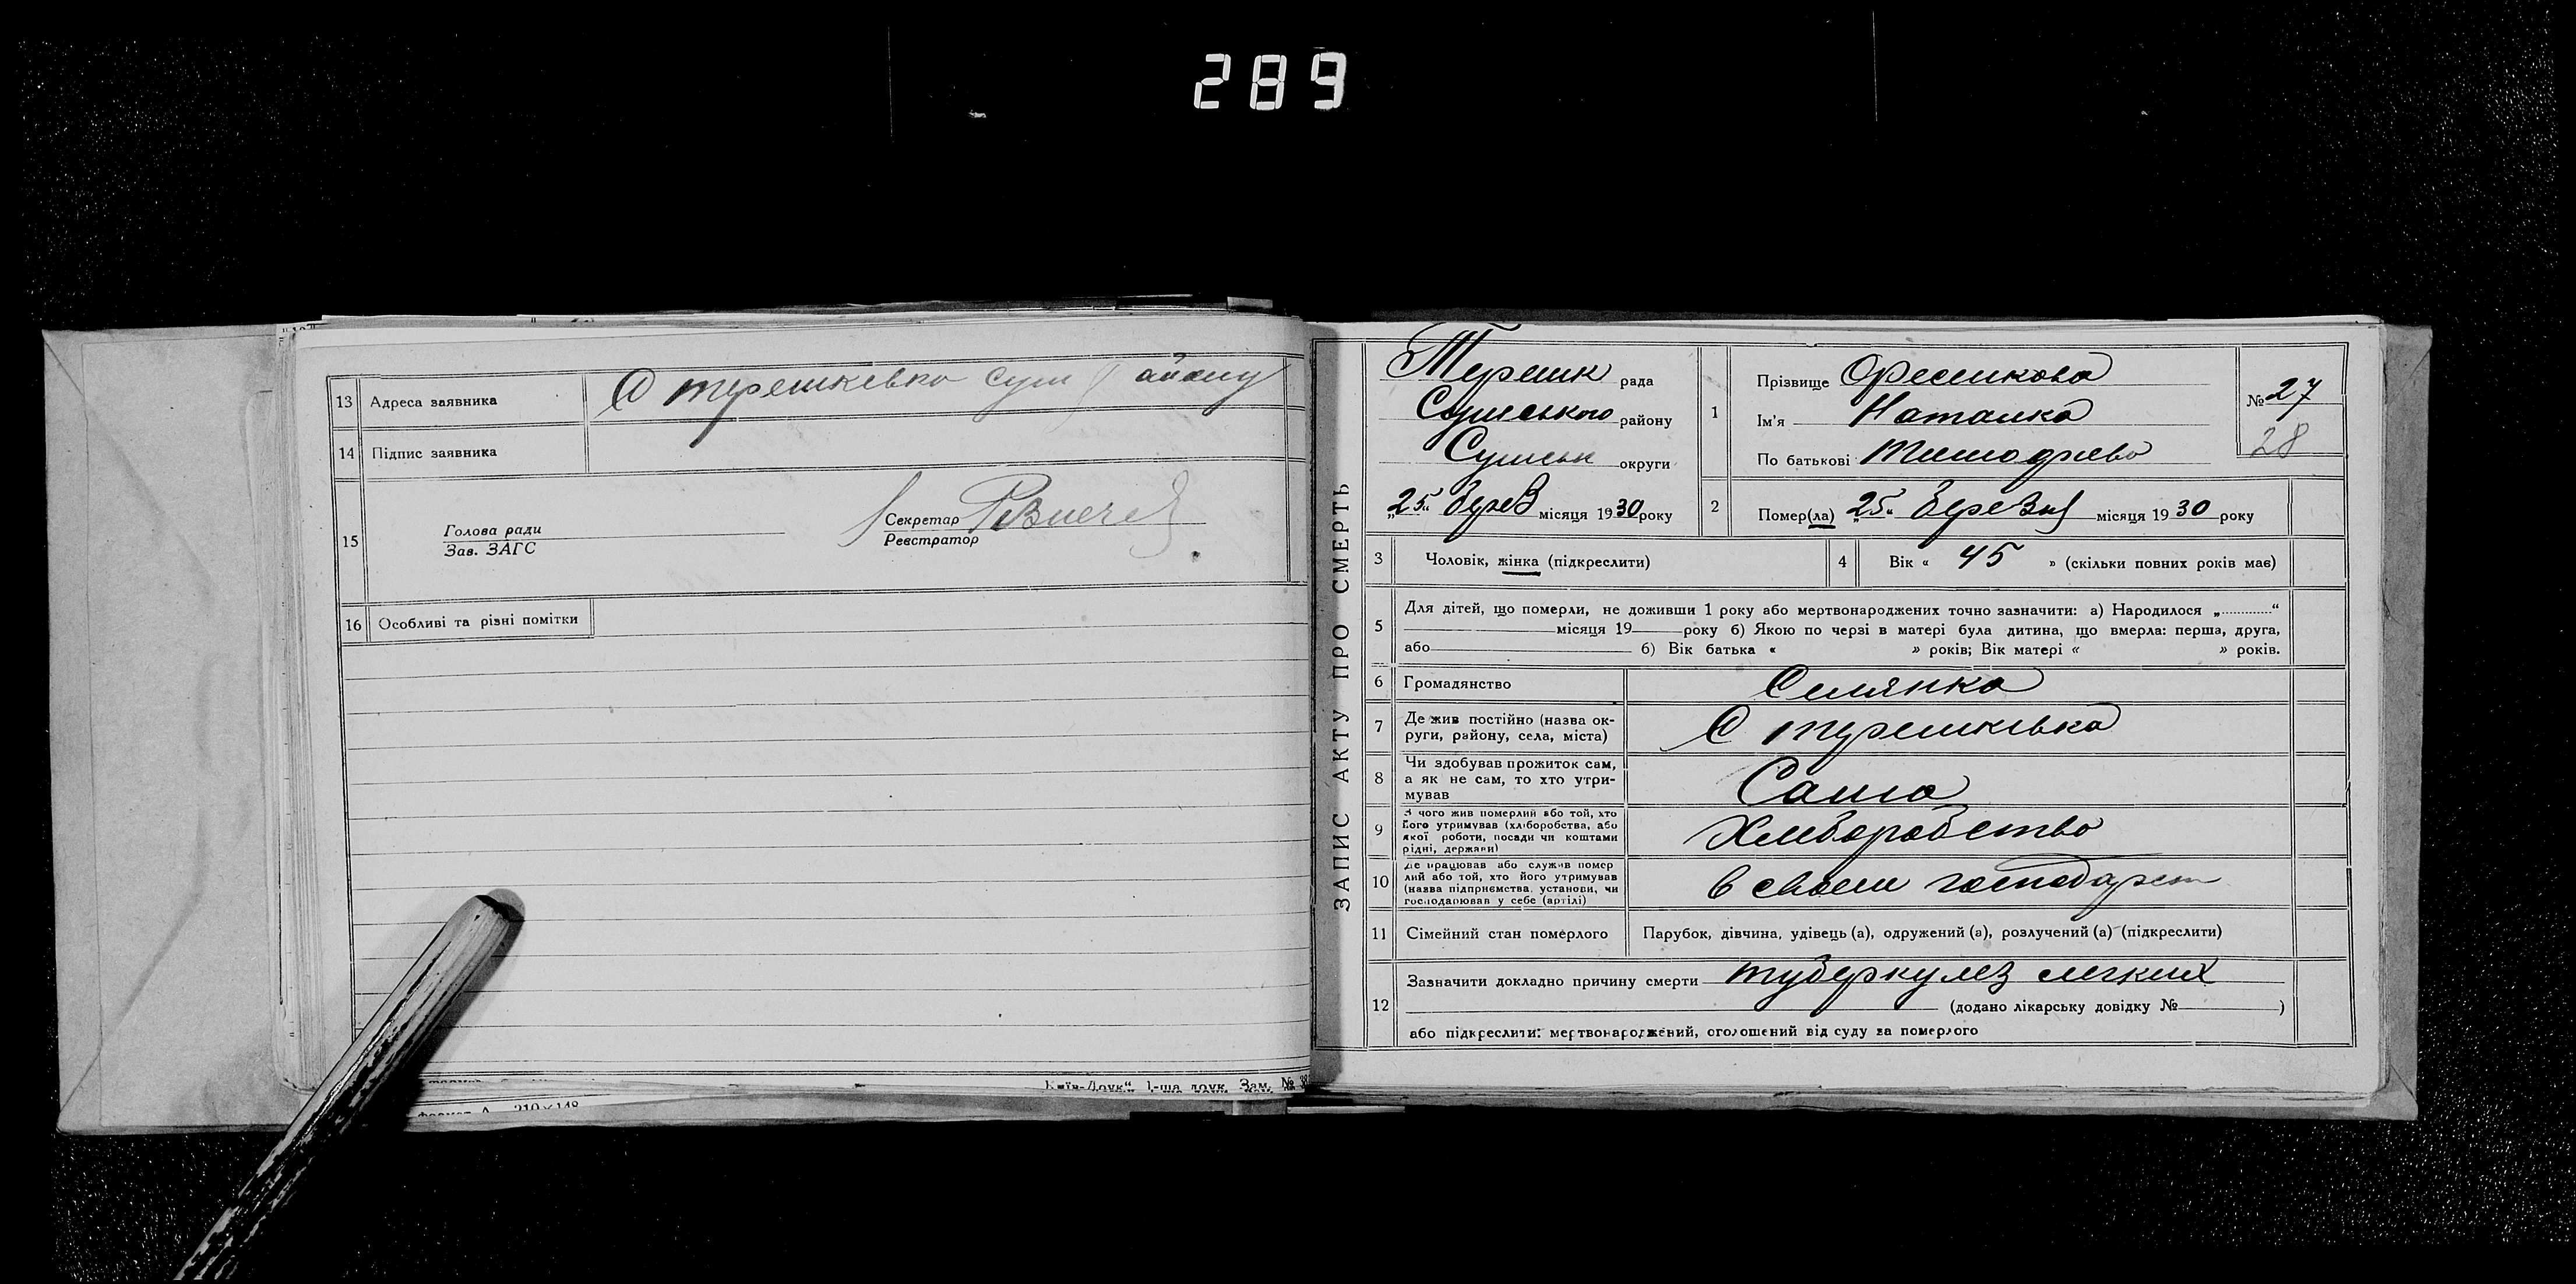 289
13 Адреса заявника С Терешківка Сум району
14 Підпис заявника
15 Голова ради
Зав. ЗАГС
Секретар
Реєстратор
16 Особливі та різні помітки
Київ-Друк“ 1-ша друк. Зам. № 38
Формат А 210×148
ЗАПИС АКТУ ПРО СМЕРТЬ
Терешк рада
Сумського району
Сумськ округи
„25“ берез місяця 1930 року
1 Прізвище
Ім'я Наталка
По батькові
№ 27
28
2 Помер(ла) „25“ березня місяця 1930 року
3 Чоловік, жінка (підкреслити)
4 Вік « 45 » (скільки повних років має)
5 Для дітей, що померли, не доживши 1 року або мертвонароджених точно зазначити: а) Народилося „............“
місяця 19 року б) Якою по черзі в матері була дитина, що вмерла: перша, друга,
або б) Вік батька « » років; Вік матері « » років.
6 Громадянство Селянка
7 Де жив постійно (назва ок-
руги, району, села, міста) С Терешківка
8 Чи здобував прожиток сам,
а як не сам, то хто утри-
мував Сама
9 З чого жив померлий або той, хто
його утримував (хліборобства, або
якої роботи, посади чи коштами
рідні, держави) Хліборобство
10 Де працював або служив помер
лий або той, хто його утримував
(назва підприємства, установи, чи
господарював у себе (артілі) в своем господарст
11 Сімейний стан померлого Парубок, дівчина, удівець (а), одружений (а), розлучений (а) (підкреслити)
12 Зазначити докладно причину смерти туберкулез легких
(додано лікарську довідку № )
або підкреслити: мертвонароджений, оголошений від суду за померлого